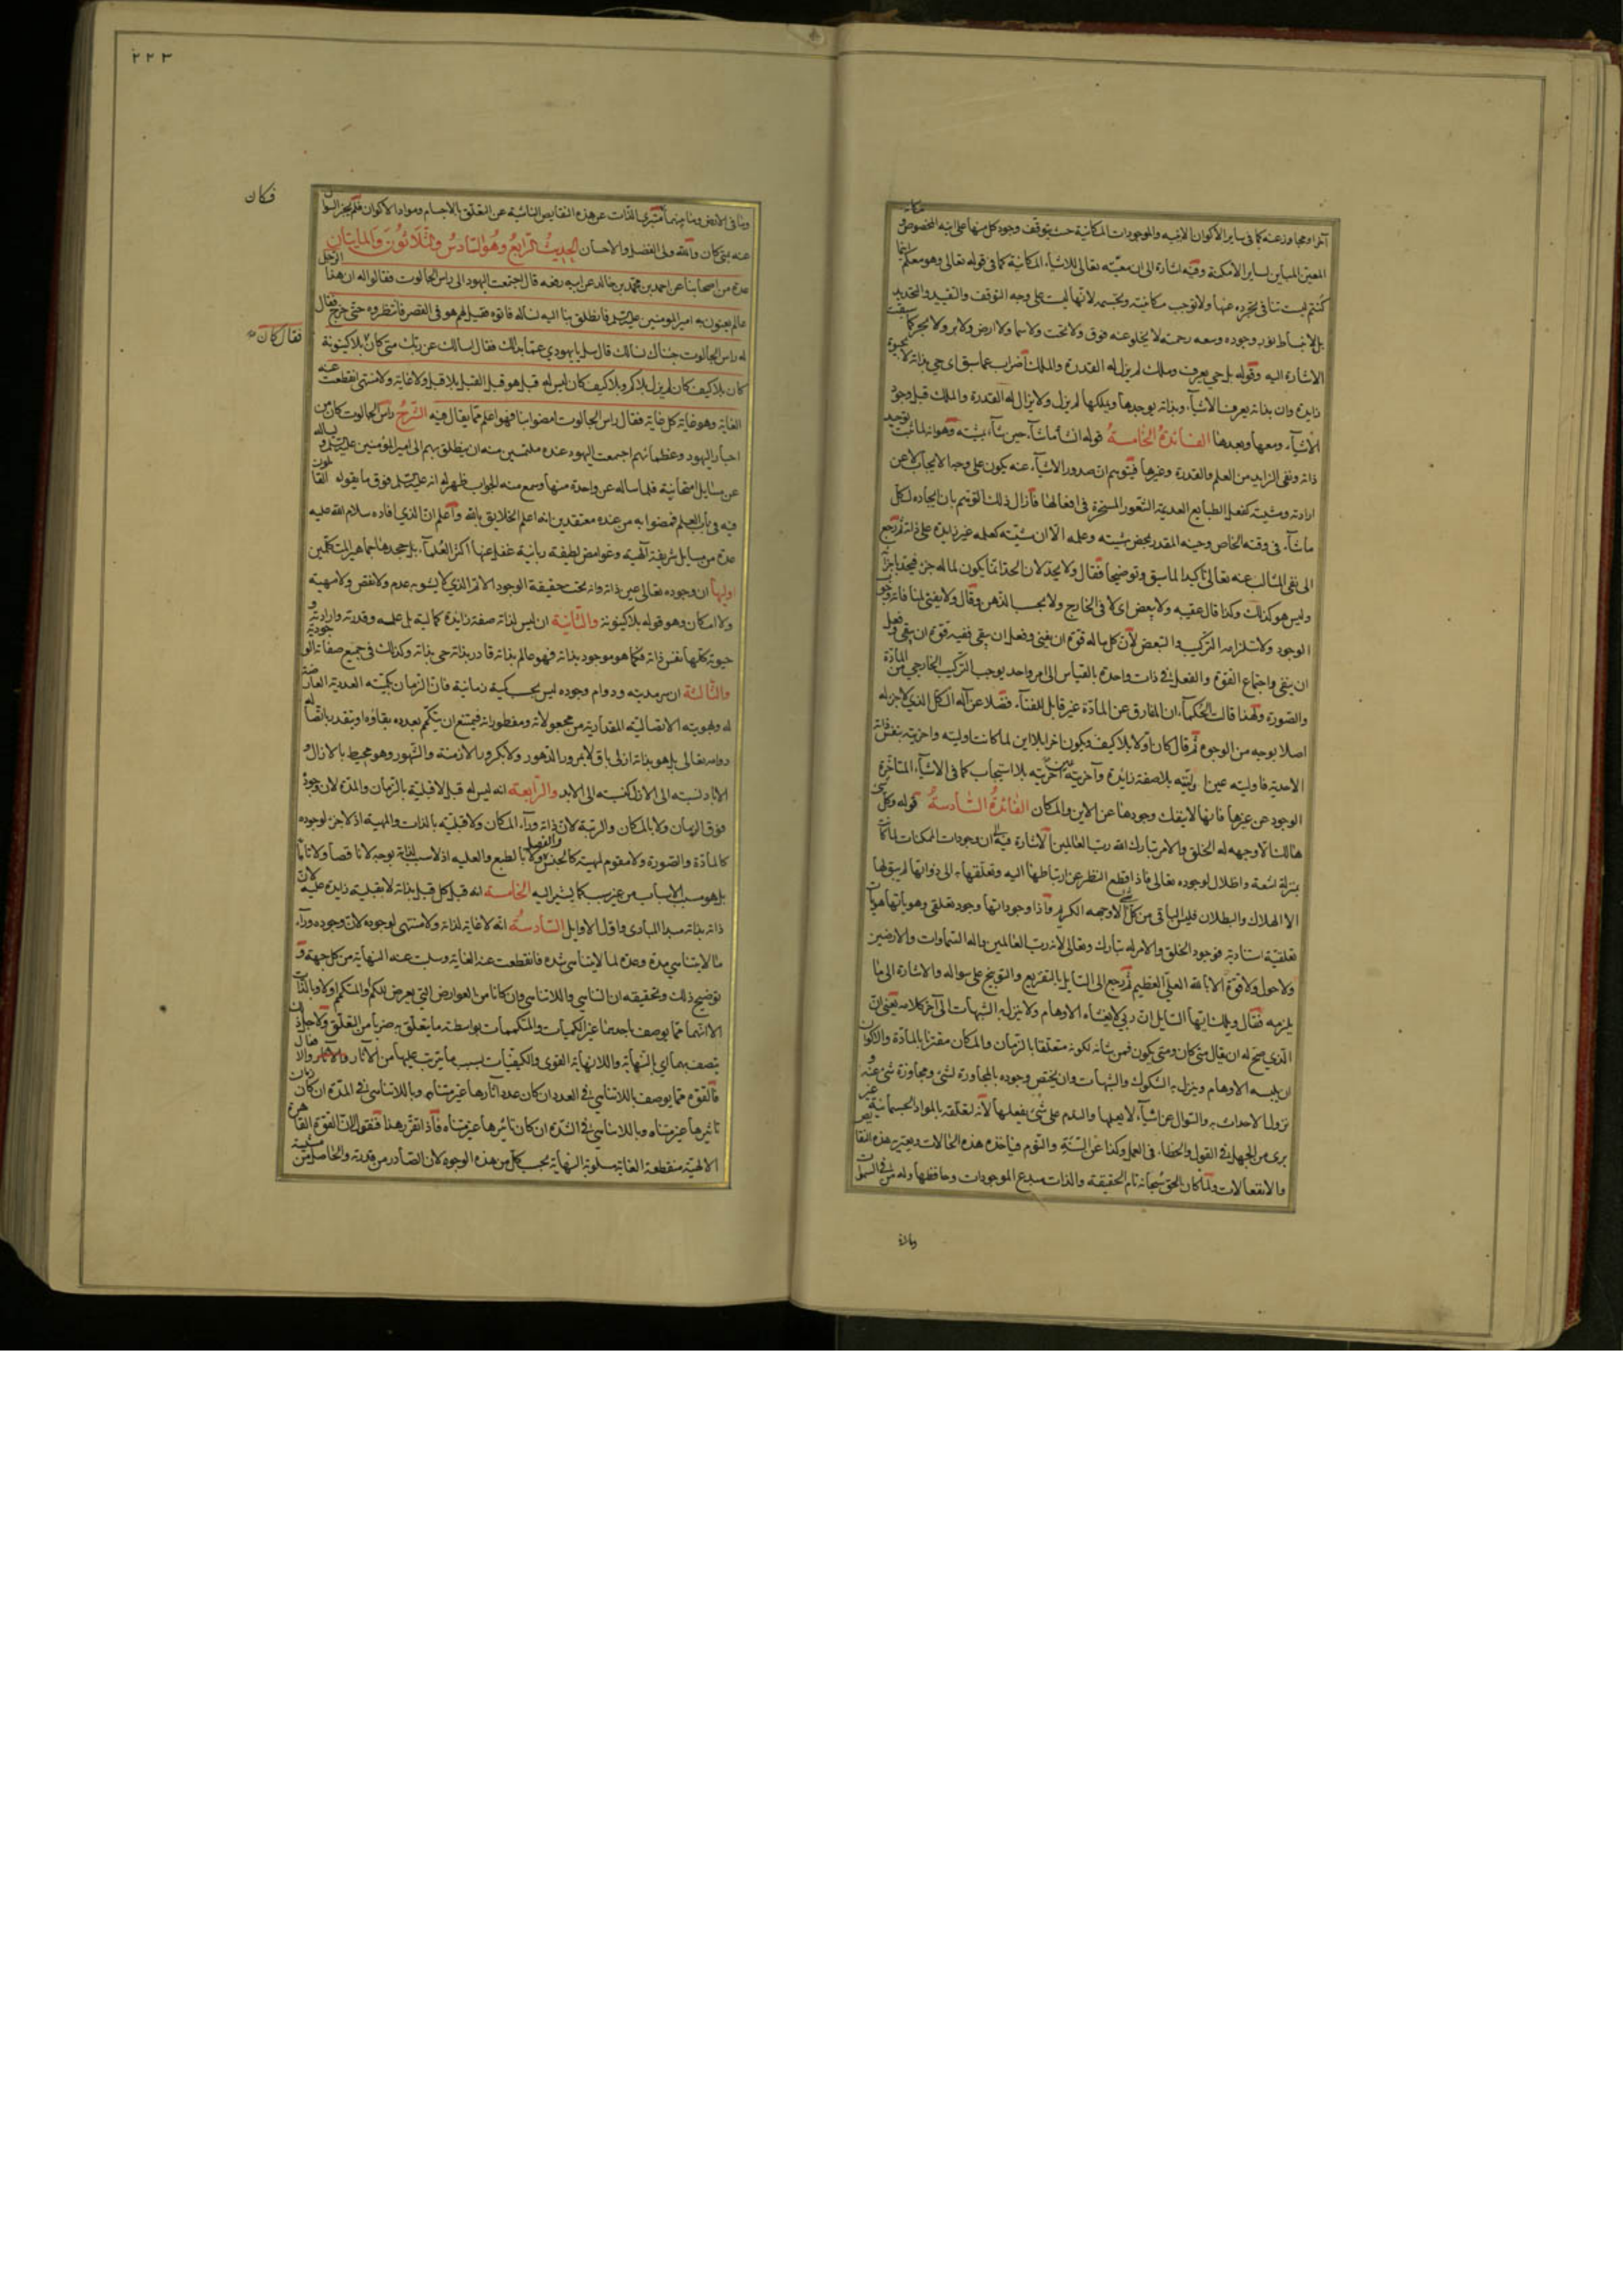 آخر او مجاوز عنه كما فى ساير الأكوان الاينيه والموجودات المكانية حيث يتوقف وجود كل منها على اينه المخصوص و مكانه
المعين المباين لساير الامكنة وفيه اشارة الى ان معيته تعالى للاشياء المكانية كما فى قوله تعالى وهو معكم اينما
كنتم ليست تنافى تجرده عنها ولا توجب مكانيته وتجسمه لانها ليست على وجه التوقف والتقييد والتحديد
بل لانبساط نور وجوده وسعه رحمته لا يخلو عنه فوق ولا تحت ولا سما ولا ارض ولا بر ولا بحر كما سبقت
الاشارة اليه وقوله بل حي يعرف وملك لم يزل له القدرة والملك اضراب عما سبق اى حي بذاته لا بحيوة
زايدة وان بذاته يعرف الاشياء وبذاته يوجدها ويملكها لم يزل ولا يزال له القدرة والملك قبل وجود
الأشياء ومعها وبعدها الفائدة الخامسة قوله انشأ ما شاء حين شاء بمشيته وهو انه لما اثبت توحيد
ذاته ونفى الزايد من العلم والقدرة وغيرها فيتوهم ان صدور الاشياء عنه يكون على وجه الايجاب لا عن
ارادته ومشيته كفعل الطبايع العديمة الشعور المسخرة فى افعالها فأزال ذلك التوهم بان ايجاده لكل
ما شاء فى وقته الخاص وحينه المقدر بمحض مشيته وعلمه الا ان مشيته كعلمه غير زايدة على ذاته ثم رجع
الى نفى المثالب عنه تعالى تأكيدا لما سبق وتوضيحا فقال ولا يحد لان الحد انما يكون لما له جزء فيحد باجزائه
وليس هو كذلك وكذا قال عقيبه ولا يبعض اى لا فى الخارج ولا بحسب الذهن وقال ولا يفنى لمنافاته وجوب
الوجود ولاستلزامه التركيب والتبعض لأن كل ما له قوة ان يفنى وفعل ان يبقى ففيه قوة ان يبقى وفعل
ان يبقى واجتماع القوة والفعل فى ذات واحدة بالقياس الى امر واحد يوجب التركيب الخارجى من المادة
والصورة ولهذا قالت الحكماء ان المفارق عن المادة غير قابل للفناء فضلا عن اله الكل الذى لا جزء له
اصلا بوجه من الوجوه ثم قال كان اولا بلا كيف ويكون اخرا بلا اين لما كانت اوليته واخريته بنفس ذاته
الاحدية فاوليته عين اخريته بلا صفة زايدة وآخريته عين اوليته بلا استيجاب كما فى الاشياء المتأخرة
الوجود عن غيرها فانها لا ينفك وجودها عن الاين والمكان الفائدة السادسة قوله وكل شىء
هالك الا وجهه له الخلق والامر تبارك الله رب العالمين الاشارة فيه الى ان وجودات الممكنات لما كانت
بمنزلة اشعة واظلال لوجوده تعالى فاذا قطع النظر عن ارتباطها اليه وتعلقها به الى ذواتها لم يبق لها
الا الهلاك والبطلان فليس الباقى من كل شىء الا وجهه الكريم واذا وجوداتها وجود تعلقى وهوياتها هويات
تعلقية استنادية فوجود الخلق والامر له تبارك وتعالى لانه رب العالمين واله السماوات والارضين
ولا حول ولا قوة الا بالله العلى العظيم ثم رجع الى السايل بالتقريع والتوبيخ على سواله والاشارة الى ما
يلزمه فقال ويلك ايها السايل ان ربى لا يغشاه الاوهام ولا ينزل به الشبهات الى آخر كلامه يعنى ان
الذى صح له ان يقال متى كان ومتى يكون فمن شانه لكونه متعلقا بالزمان والمكان مقترنا بالمادة والاكوان
ان يلبسه الاوهام وينزل به الشكوك والشبهات وان يختص وجوده بالمجاورة لشىء ومجاوزة شىء عنه و
نزول الاحداث به والسوال عن اشياء لا يعلمها والندم على شىء يفعلها لأنه لتعلقه بالمواد الجسمانية غير
برى من الجهل فى القول والخطاء فى العمل وكذا عن السنة والنوم فياخذه هذه الحالات ويعتريه هذه النقايص
والانفعالات ولما كان الحق سبحانه تام الحقيقه والذات مبدع الموجودات وحافظها وله من فى السموات
وما فى
وما فى الارض وما بينهما متبرى الذات عن هذه النقايص الناشية عن التعلق بالاجسام ومواد الأكوان فلم يجز السوال
عنه بمتى كان والله ولى الفضل والاحسان الحديث الرابع وهو السادس والثلاثون والمايتان
عدة من اصحابنا عن احمد بن محمد بن خالد عن ابيه رفعه قال اجتمعت اليهود الى راس الجالوت فقالوا له ان هذا الرجل
عالم يعنون به امير المومنين عليه السلم فانطلق بنا اليه نساله فاتوه فقيل لهم هو فى القصر فانتظروه حتى خرج فقال
له راس الجالوت جئناك نسالك قال سل يا يهودى عما بدا لك فقال اسالك عن ربك متى كان بلا كينونة
كان بلا كيف كان لم يزل بلا كم وبلا كيف كان ليس له قبل هو قبل القبل بلا قبل ولا غاية ولا منتهى انقطعت عنه
الغاية وهو غاية كل غاية فقال راس الجالوت امضوا بنا فهو اعلم مما يقال فيه الشرح راس الجالوت كان من
احبار اليهود وعظمائهم اجتمعت اليهود عنده ملتمسين منه ان ينطلق بهم الى امير المؤمنين عليه السلم و يساله
عن مسايل امتحانية فلما ساله عن واحدة منها وسمع منه الجواب ظهر له انه عليه السلم فوق ما يقوله القائلون
فيه فى باب العلم فمضوا به من عنده معتقدين انه اعلم الخلايق بالله واعلم ان الذى افاده سلام الله عليه
عدة من مسايل شريفة آلهية وغوامض لطيفة ربانية غفل عنها اكثر العلماء بل جحدها جماهير المتكلمين
اوليها ان وجوده تعالى عين ذاته وانه بحت حقيقة الوجود الاتم الذى لا يشوبه عدم ولا نقص ولا مهية
ولا امكان وهو قوله بلا كينونة والثانية ان ليس لذاته صفة زايدة كمالية بل علمه وقدرته وارادته و
حيوته كلها نفس ذاته فكما هو موجود بذاته فهو عالم بذاته قادر بذاته حى بذاته وكذلك فى جميع صفاته الوجودية
والثالثة ان سرمديته ودوام وجوده ليس بحسب كمية زمانية فان الزمان بكميته العددية العارضة
له وبهويته الاتصالية المقدارية من مجعولاته ومفطوراته فيمتنع ان يتكمم بعدده بقاؤه او يتقدر باتصاله
دوامه تعالى بل هو بذاته ازلى باق لا بمرور الدهور ولا بكرور الازمنة والشهور وهو محيط بالازال و
الاباد نسبته الى الازل كنسبته الى الابد والرابعة انه ليس له قبل لا قبلية بالزمان والمدة لان وجوده
فوق الزمان ولا بالمكان والرتبة لان ذاته وراء المكان ولا قبلية بالذات والمهية اذ لا جزء لوجوده
كالمادة والصورة ولا مقوم لمهيته كالجنس والفصل ولا بالطبع والعلية اذ لا سبب لذاته بوجه لا ناقصا ولا تاما
بل هو مسبب الاسباب من غير سبب كما يشير اليه الخامسة انه قبل كل قبل بذاته لا بقبلية زايدة عليه لان
ذاته بذاته مبدا المبادى واول الاوايل السادسة انه لا غاية لذاته ولا منتهى لوجوده لان وجوده وراء
ما لا يتناهى مدة وعدة لما لا يتناهى شدة فانقطعت عنه الغاية وسلبت عنه النهاية من كل جهة و
توضيح ذلك وتحقيقه ان التناهى واللاتناهى وان كانا من العوارض التى يعرض للكم والمتكمم اولا وبالذات
الا انهما مما يوصف باحدهما غير الكميات والمتكممات بواسطة ما يتعلق به ضربا من التعلق ولاجل ذلك
يتصف بهما اى بالنهاية واللانهاية القوى والكيفيات بسبب ما يترتب عليها من الآثار والافعال والازمان
فالقوة مما يوصف باللاتناهى فى العدد ان كان عدد اثارها غير متناه وباللاتناهى فى المدة ان كان زمان
تاثيرها غير متناه وباللاتناهى فى الشدة ان كان تاثيرها غير متناه فاذا تقرر هذا فنقول ان القوة القاهرة
الالهية منقطعة الغاية مسلوبة النهاية بحسب كل من هذه الوجوه لان الصادر من قدرته والحاصل من مشيته
فكان
فقال كان
٢٢٣